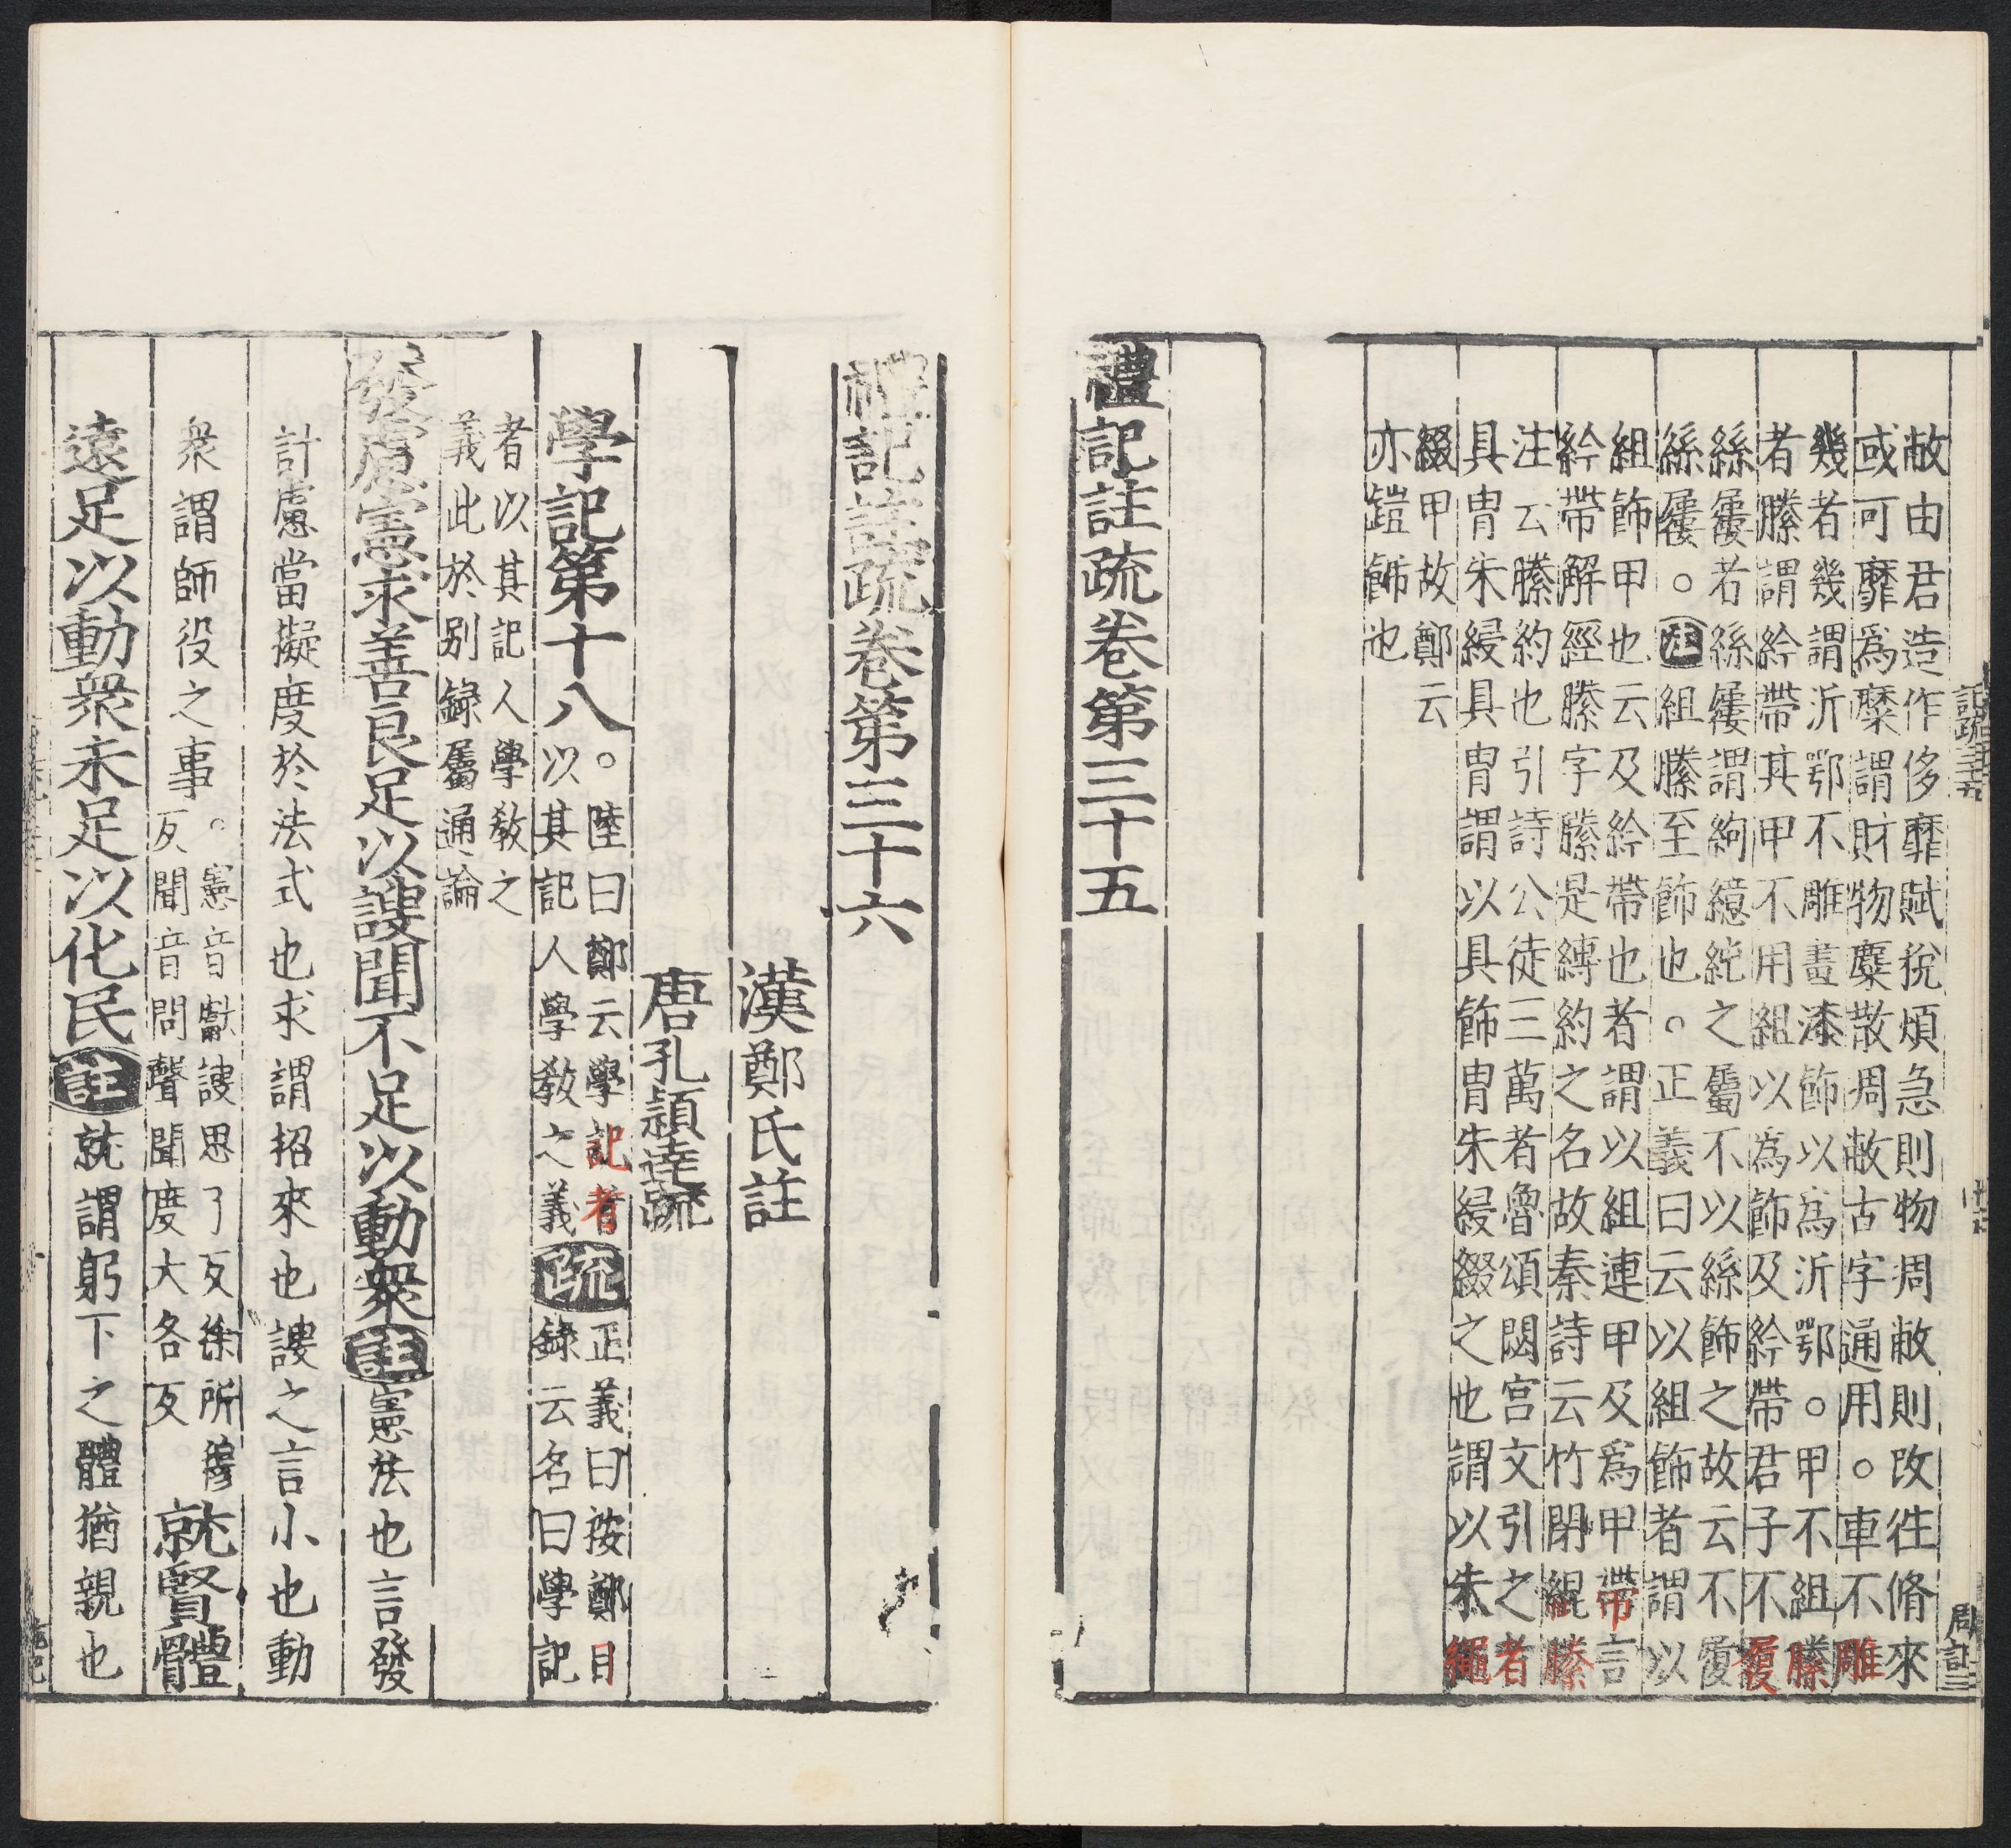 敝由君造作侈靡賦稅煩急則物凋敝則改徃脩來
或可靡爲糜謂財物麋散凋敝古字通用。車不雕
幾者幾謂沂鄂不雕畫漆飾以爲沂鄂。甲不組縢
者縢謂紟帶其甲不用組以爲飾及紟帶君子不履
絲屨者絲屨謂絇繶純之屬不以絲飾之故云不履
絲屨。注組縢至飾也。正義曰云以組飾者謂以
組飾甲也云及紟帶也者謂以組連甲及爲甲帶言
紟帶解經縢字縢是縳約之名故秦詩云竹閉緄縢
注云縢約也引詩公徒三萬者魯頌閟宮文引之者
具冑朱綅具冑謂以具飾冑朱綅綴之也謂以朱繩
綴甲故鄭云
亦鎧飾也
禮記註疏卷第三十五
記疏三十五
禮記註疏卷第三十六
漢鄭氏註
唐孔穎達疏
學記第十八。陸曰鄭云學記者
以其記人學敎之義疏正義曰按鄭目
錄云名曰學記
者以其記人學敎之
義此於别錄屬通論
發慮憲求善良足以謏聞不足以動衆註憲法也言發
計慮當擬度於法式也求謂招來也謏之言小也動
衆謂師役之事。憲音獻謏思了反徐所穆
反聞音問聲聞度大各反。就賢體
遠足以動衆未足以化民註就謂躬下之體猶親也